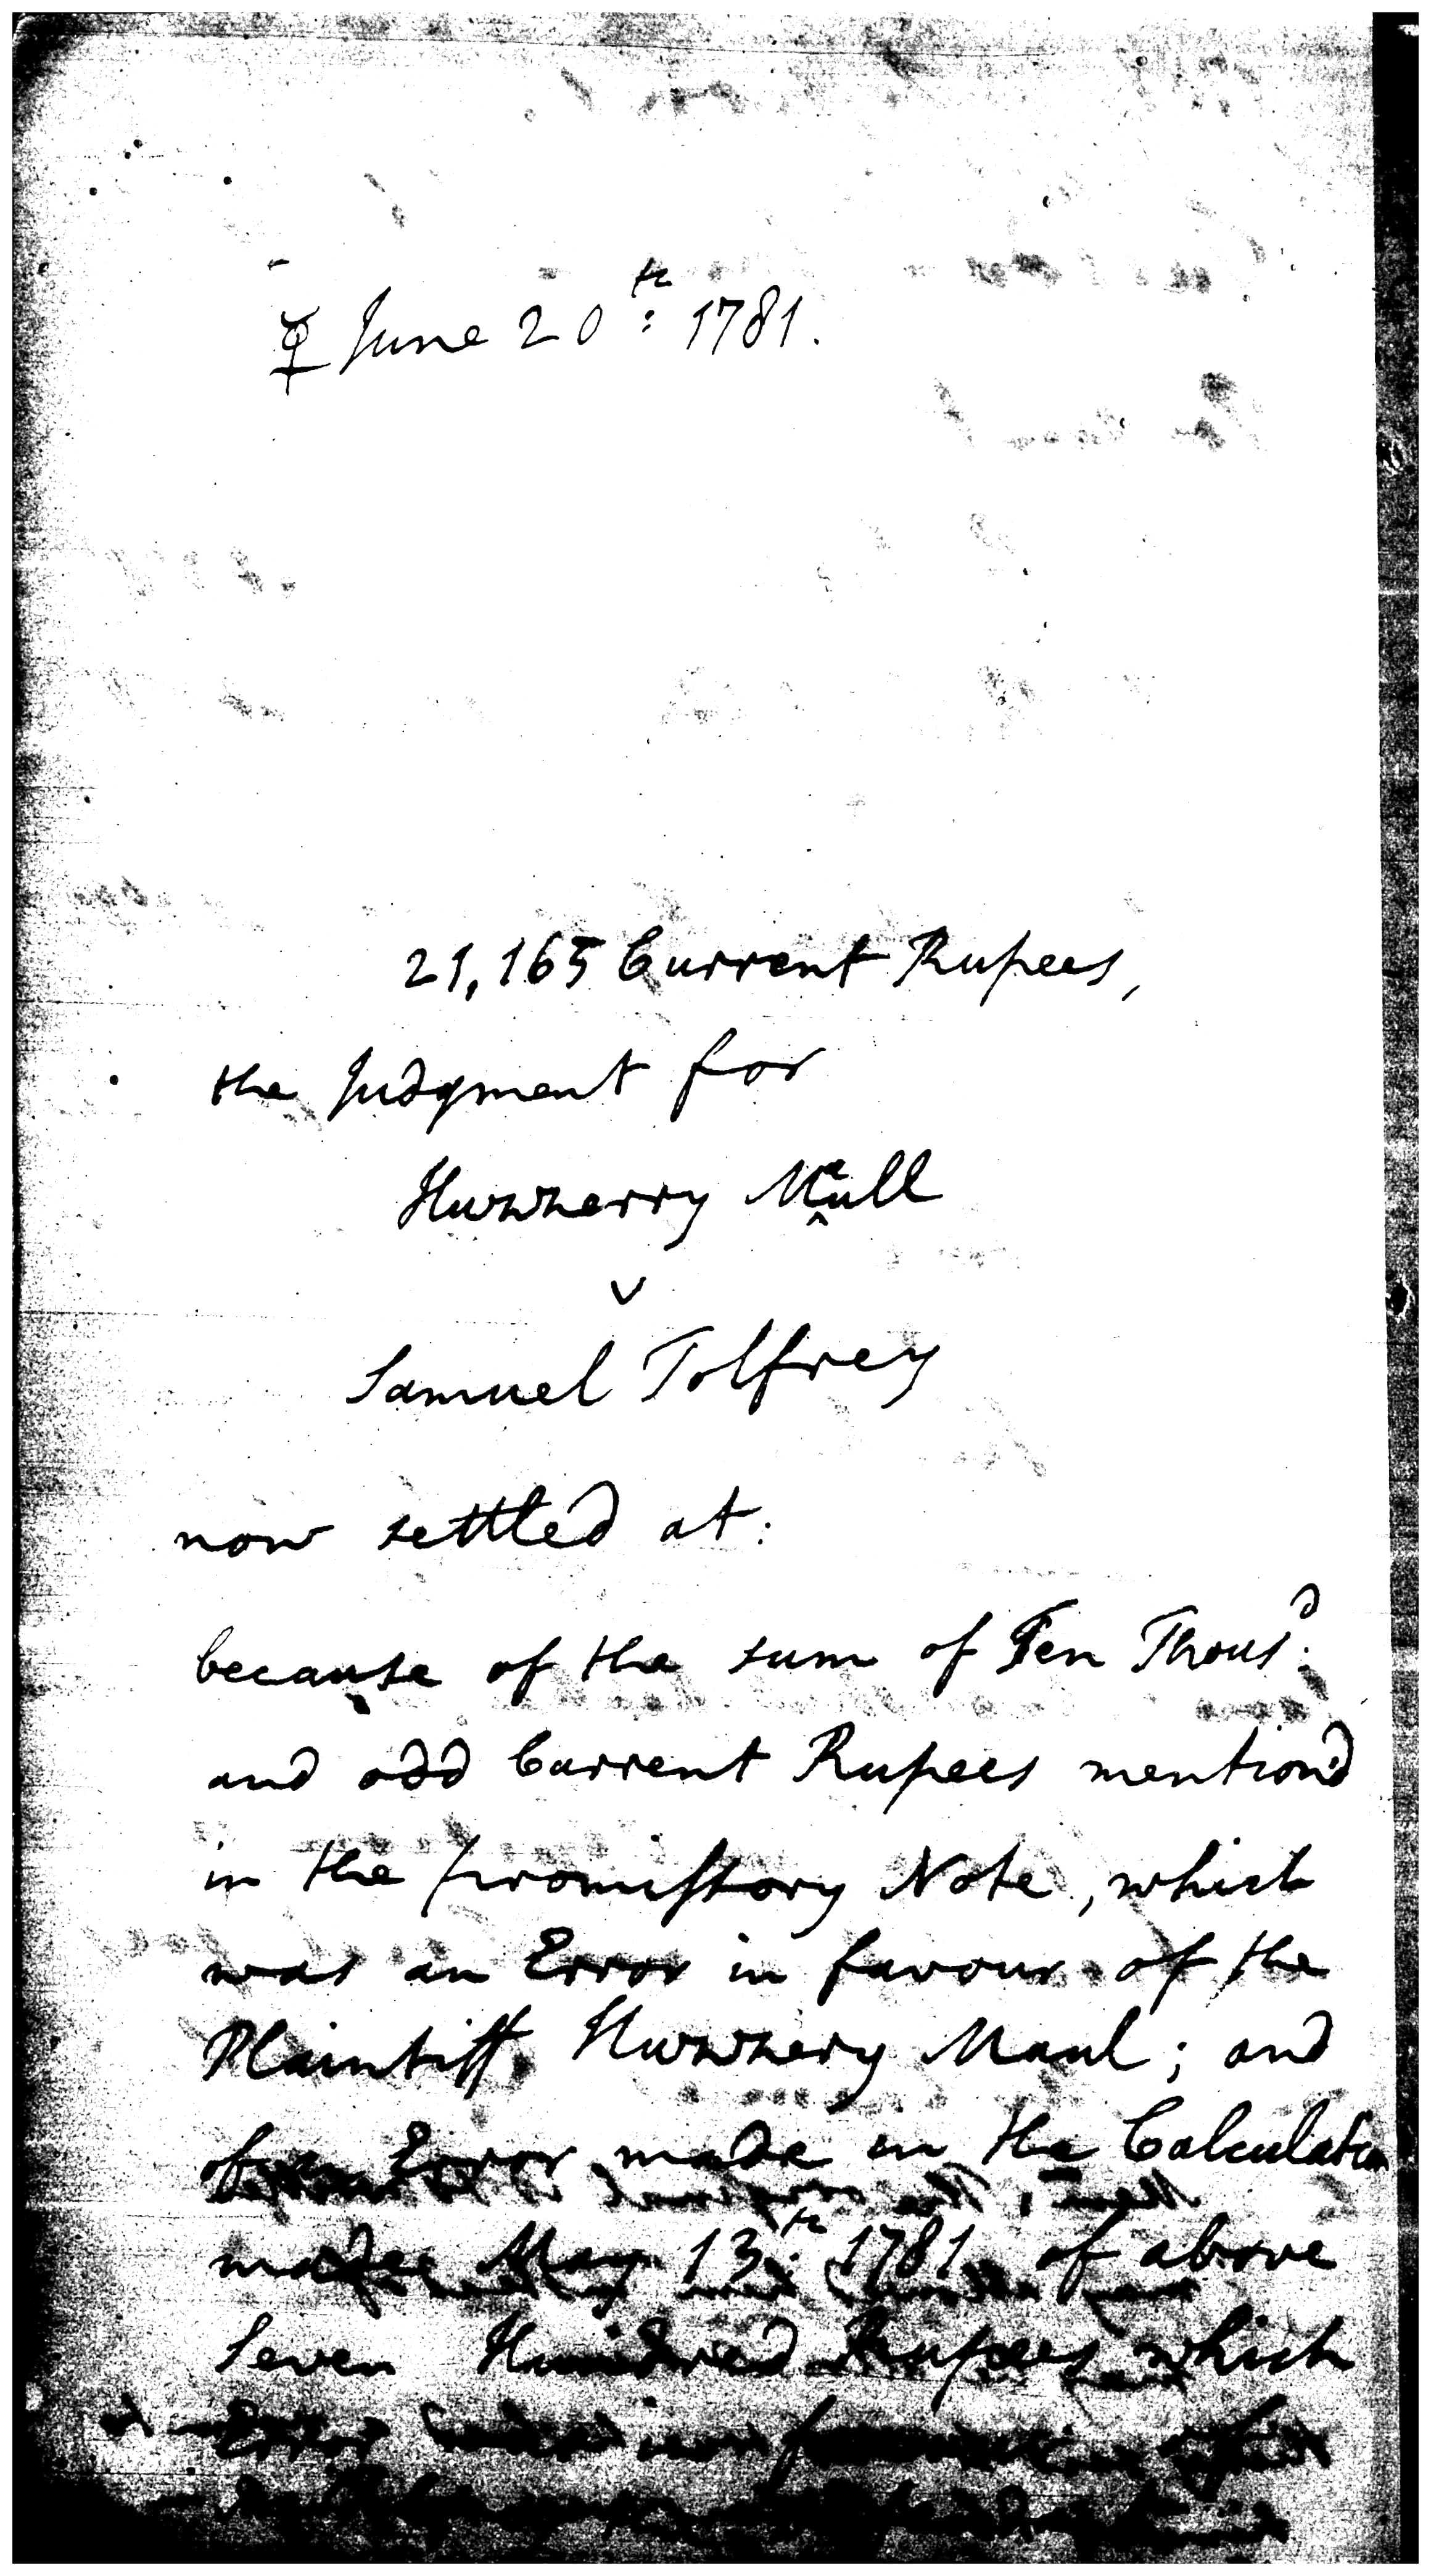 ☿ June 20th: 1781.
21,165 Current Rupees,
the Judgment for
Huzzerry Maull
v
Samuel Tolfrey
now settled at:
because of the sum of Ten Thousd.
and odd Current Rupees mentiond
in the promissory Note, which
was an Error in favour of the
Plaintiff Huzzery Maul; and
of an Error made in the Calculation
made May 13th: 1781 of above
Seven Hundred Rupees which
Error